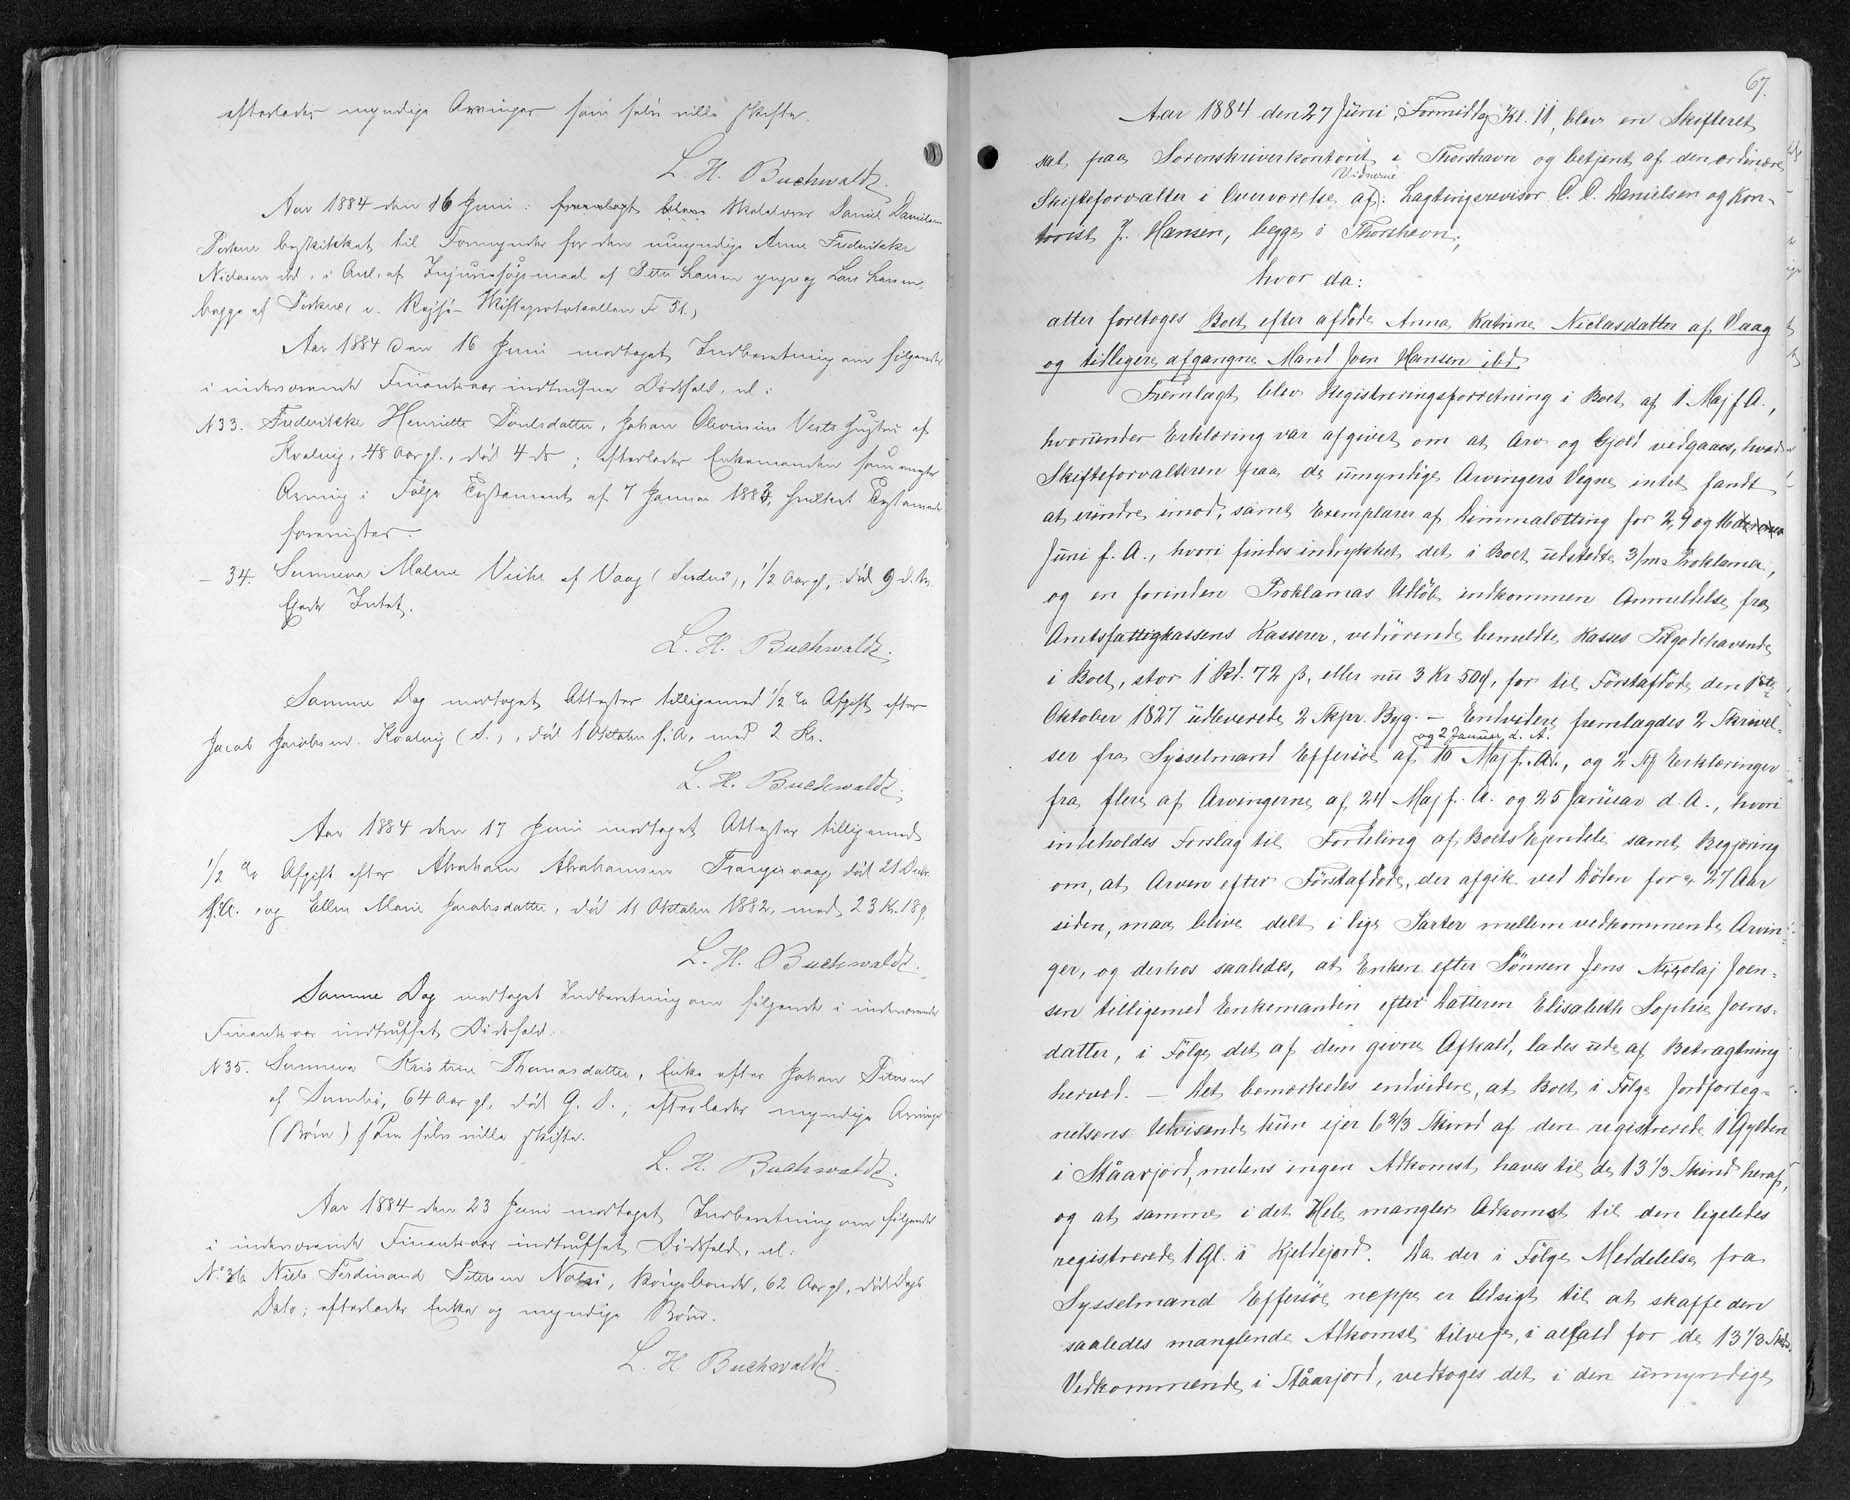 efterlader myndige Arvinger som selv ville skifte.
L. H. Buchwaldt.
Aar 1884 den 16 Juni: fremlagt blev Skolelærer Daniel Danielsen
beskikket til Formynder for den umyndige Anne Frederikke
i Anl. af Injuriesøgsmaal af Peter Hansen yngre og Lars Hansen,
begge af Skifteprotokollen Fo 51.)
Aar 1884 den 16 Juni modtaget Indberetning om følgende
i indeværende Finantsaar indtrufne Dødsfald, nl:
N 33. Frederikke Henriette Poulsdatter, Johan Olivinius Vests Hustru af
Kvalvig, 48 Aar gl., død 4 ds; efterlader Enkemanden som eneste
Arving i Følge Testament af 7 Januar 1883, hvilket Testament
forevistes.
- 34. Sunneva Malene Vicke af Vaag (Suderø), 1/2 Aar gl., død 9 d. M.
Ejede Intet.
L. H. Buchwaldt.
Samme Dag modtaget Attester tilligemed 1/2 % Afgift efter
Jacob Jacobsen. Kvalvig (S.), død 1 Oktober f. A., med 2 Kr.
L. H. Buchwaldt.
Aar 1884 den 17 Juni modtaget Attester tilligemed
1/2 % Afgift efter Abraham Abrahamsen Trangisvaag, død 21 Decbr.
f. A. og Ellen Marie Jacobsdatter, død 11 Oktober 1882, med 23 Kr. 18 ø.
L. H. Buchwaldt.
Samme Dag modtaget Indberetning om følgende i indeværende
Finantsaar indtruffet Dødsfald.
N 35. Sunneva Kristine Thomasdatter, Enke efter Johan Petersen
af Sumbø, 64 Aar gl., død 9. d.; efterlader myndige Arvinger
(Børn) som selv ville skifte.
L. H. Buchwaldt.
Aar 1884 den 23 Juni modtaget Indberetning om følgende
i indeværende Finantsaar indtruffet Dødsfald, nl:
No 36. Niels Ferdinand Petersen Nolsø, Kongsbonde, 62 Aar gl., død Dags
Dato; efterlader Enke og myndige Børn.
L. H. Buchwaldt.
67.
Aar 1884 den 27 Juni, Formidtg Kl. 11, blev en Skifteret
sat paa Sorenskriverkontoret i Thorshavn og betjent af den ordinære
Skifteforvalter i Overværelse af Vidnerne: Lagtingsrevisor C. C. Danielsen og Kon-
torist J. Hansen, begge i Thorshavn;
hvor da:
atter foretoges Boet efter afdøde Anna Katrine Niclasdatter af Vaag
og tidligere afgangne Mand Joen Hansen ibd.
Fremlagt blev Registreringsforretning i Boet af 1 Maj f. A.,
hvorunder Erklæring var afgivet om at Arv og Gjeld vedgaaes, hvad
Skifteforvalteren paa de umyndige Arvingers Vegne intet fandt
at erindre imod, samt Exemplarer af Dimmalætting for 2, 9 og 16
Juni f. A., hvori findes indrykket det i Boet udstedte 3/m. Proklama,
og en forinden Proklamas Udløb indkommen Anmeldelse fra
Amtsfattigkassens Kasserer, vedrørende bemeldte Kasses Tilgodehavende
i Boet, stor 1 Rd. 72 β, eller nu 3 Kr 50 ø, for til Førstafdøde den 18de
Oktober 1827 udleverede 2 Skpr. Byg. - Endvidere fremlagdes 2 Skrivel-
ser fra Sysselmand Effersøe af 10 Maj f. A. og 2 Januar d. A., og 2 Erklæringer
fra flere af Arvingerne af 24 Maj f. A. og 25 Januar d. A., hvori
indeholdes Forslag til Fordeling af Boets Ejendele samt Begjæring
om, at Arven efter Førstafdøde, der afgik ved Døden for c. 27 Aar
siden, maa blive delt i lige Parter mellem vedkommende Arvin-
ger, og derhos saaledes, at Enken efter Sønnen Jens Nikolaj Joen-
sen tilligemed Enkemanden efter Datteren Elisabeth Sophie Joens-
datter, i Følge det af dem givne Afkald, lades ude af Betragtning
herved. - Det bemærkedes endvidere, at Boet i Følge Jordforteg-
nelsens Udvisende kun ejer 6 2/3 Skind af den registrerede 1 Gylden
i Skåarjord, medens ingen Adkomst haves til de 13 1/3 Skind heraf,
og at samme i det Hele mangler Adkomst til den ligeledes
registrerede 1 Gl. i Kjeldejord. Da der i Følge Meddelelse fra
Sysselmand Effersøe neppe er Udsigt til at skaffe den
saaledes manglende Adkomst tilveje, i alfald for de 13 1/3 Skds.
Vedkommende i Skåarjord, vedtoges det i den umyndige